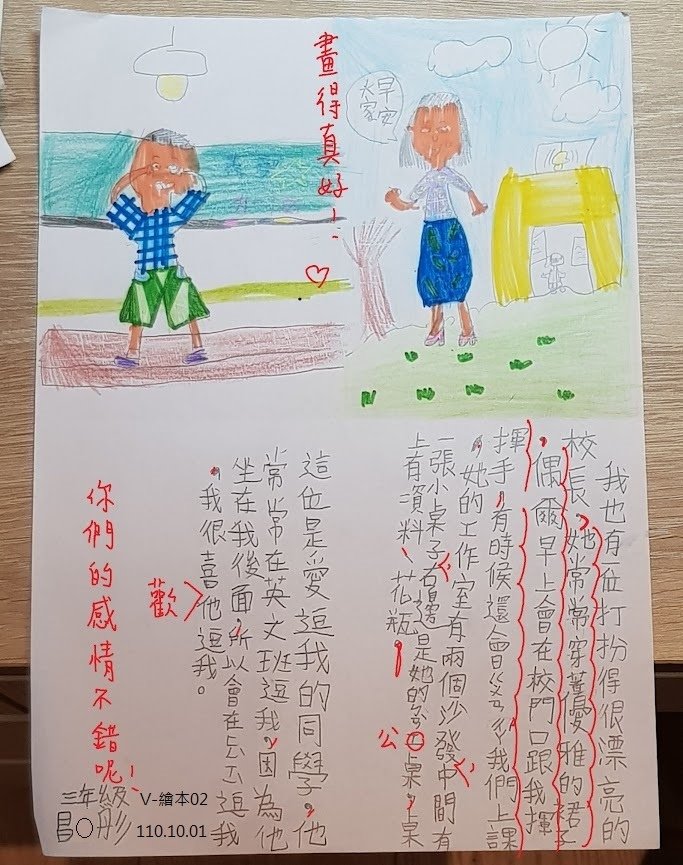 畫得真好！
早安
大家
我也有位打扮得很漂亮的
校長，她常常穿著優雅的裙子
，偶爾早上會在校門口跟我揮
揮手，有時候還會我們上課
，她的工作室有兩個沙發，中間有
一張小桌子，右邊是她的工桌，桌
上有資料、花瓶。
公
這位是愛逗我的同學，他
常常在英文班逗我，因為他
坐在我後面，所以會在逗我
。我很喜他逗我。
歡
你們的感情不錯呢！
三年級
昌○彤
V-繪本02
110.10.01